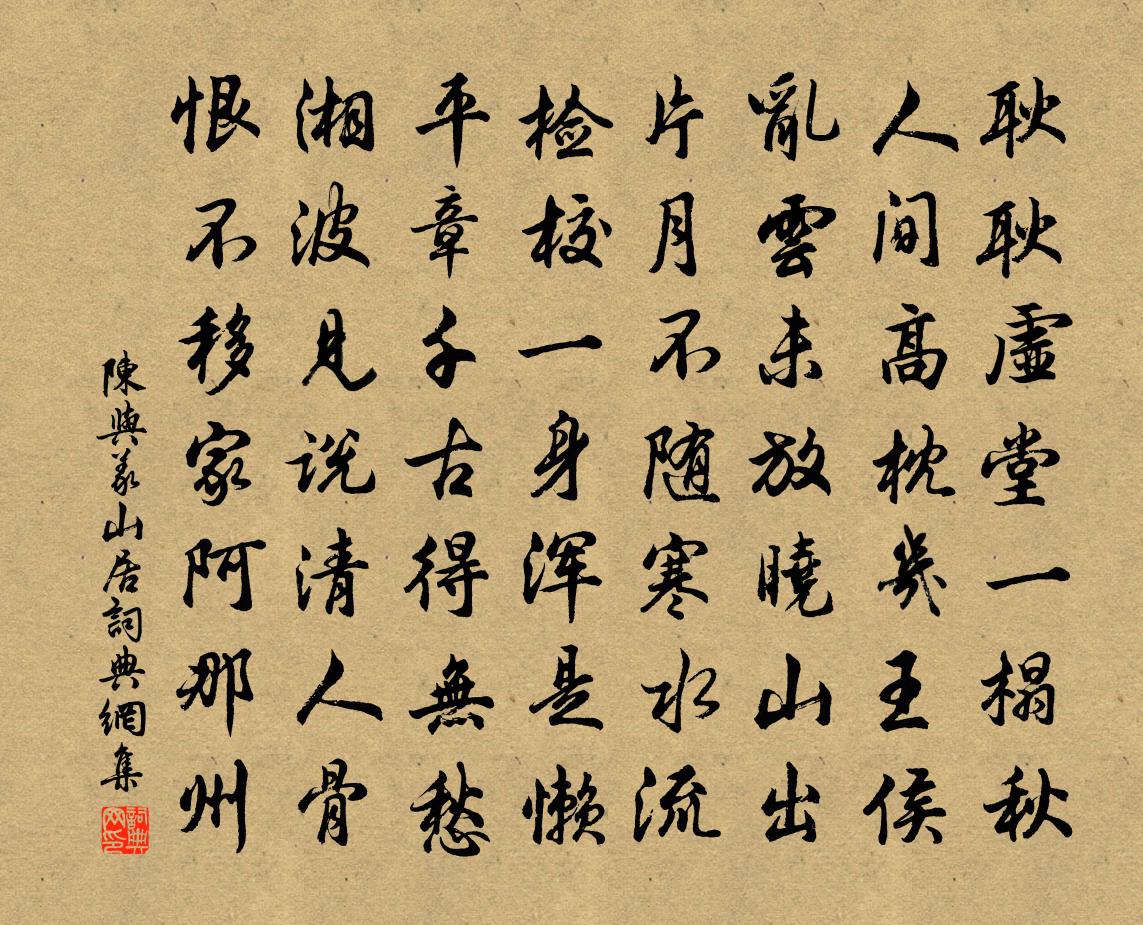 耿耿虛堂一榻秋
人间高枕幾王侯
亂雲未放曉山出
片月不随寒水流
检校一身浑是懒
平章千古得無愁
湘波見说清人骨
恨不移家阿那州
陳與义山居詞典網集
詞典网印